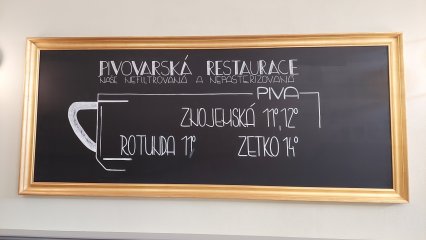 PIVOVARSKÁ RESTAURACE
NAŠE NEFILTROVANÁ A NEPASTERIZOVANÁ
PIVA
ZNOJEMSKÁ 11°, 12°
ROTUNDA 11° ZETKO 14°